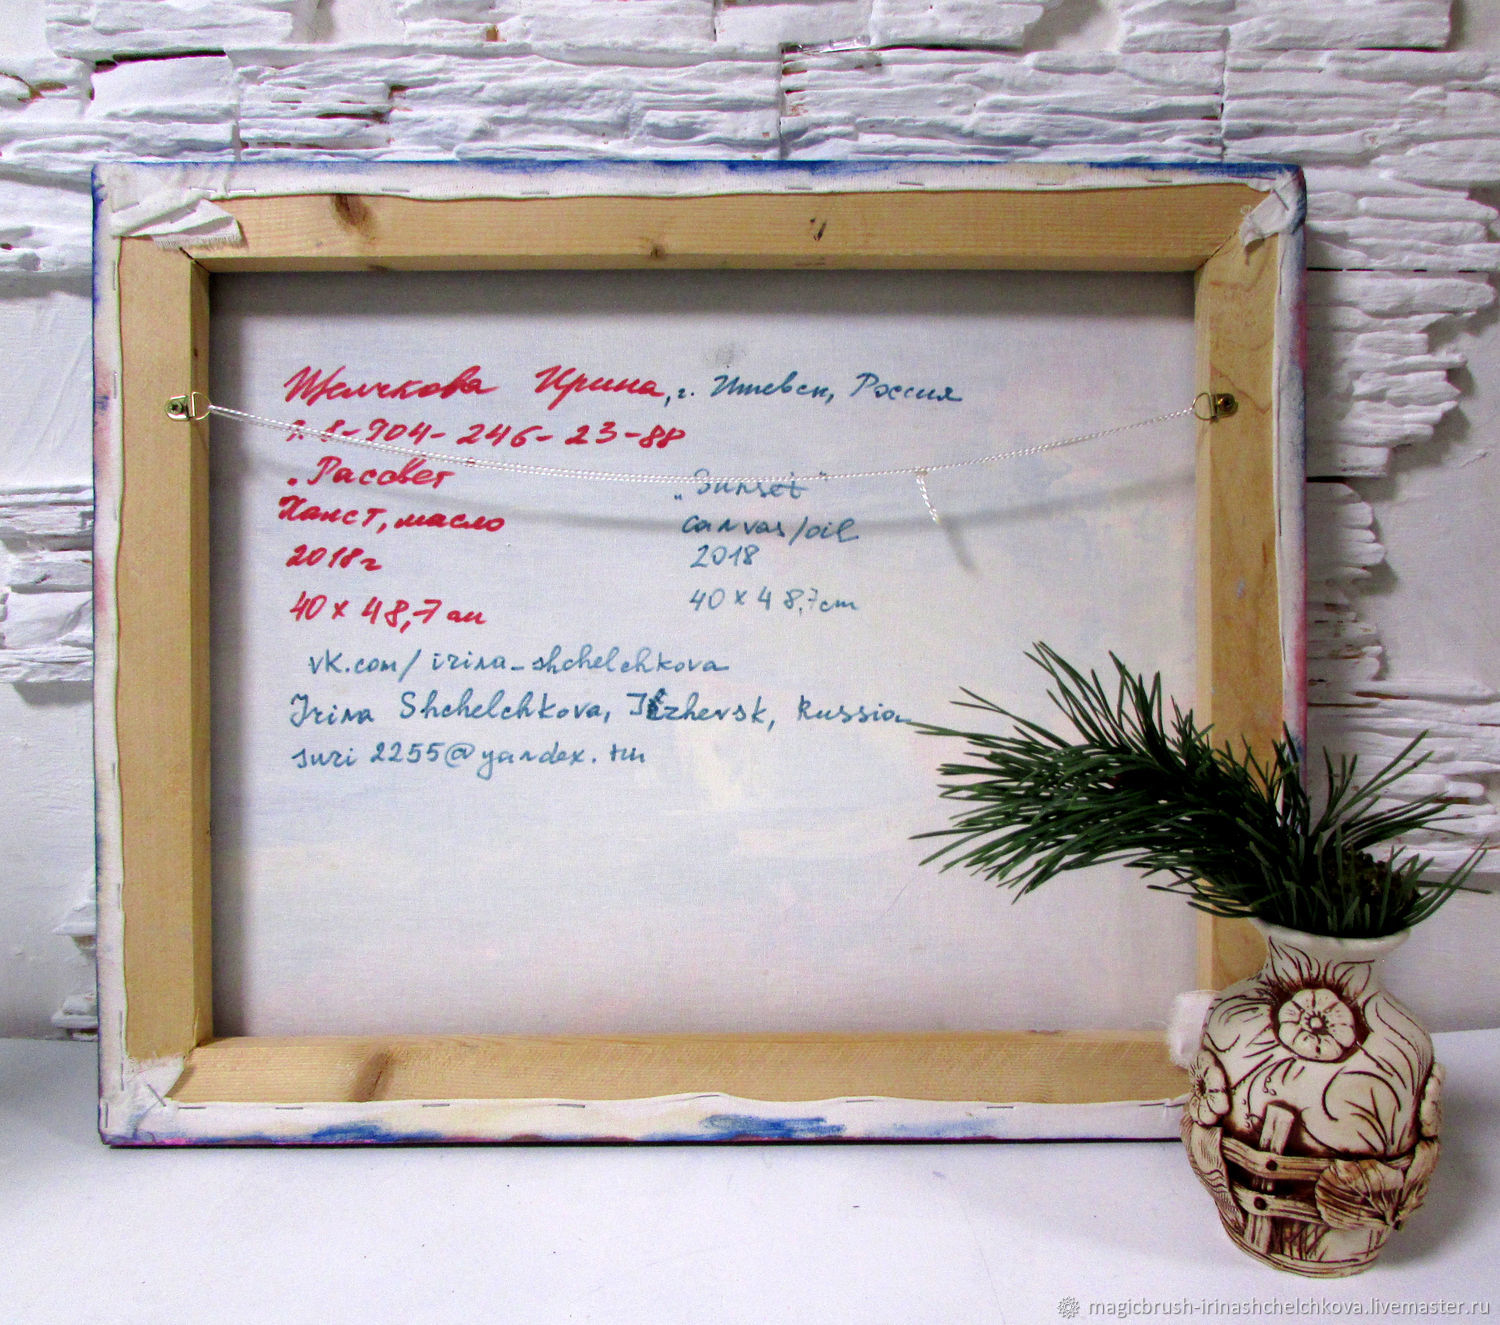 Щелчкова Ирина, г. Ижевск, Россия
8-904-246-23-88
"Рассвет"
"Sunset"
Холст, масло
canvas/oil
2018г
2018
40 x 48,7 см
40 x 48,7cm
vk.com/irina_shchelchkova
Irina Shchelchkova, Izhevsk, Russia
suri2255@yandex.ru
magicbrush-irinashchelchkova.livemaster.ru